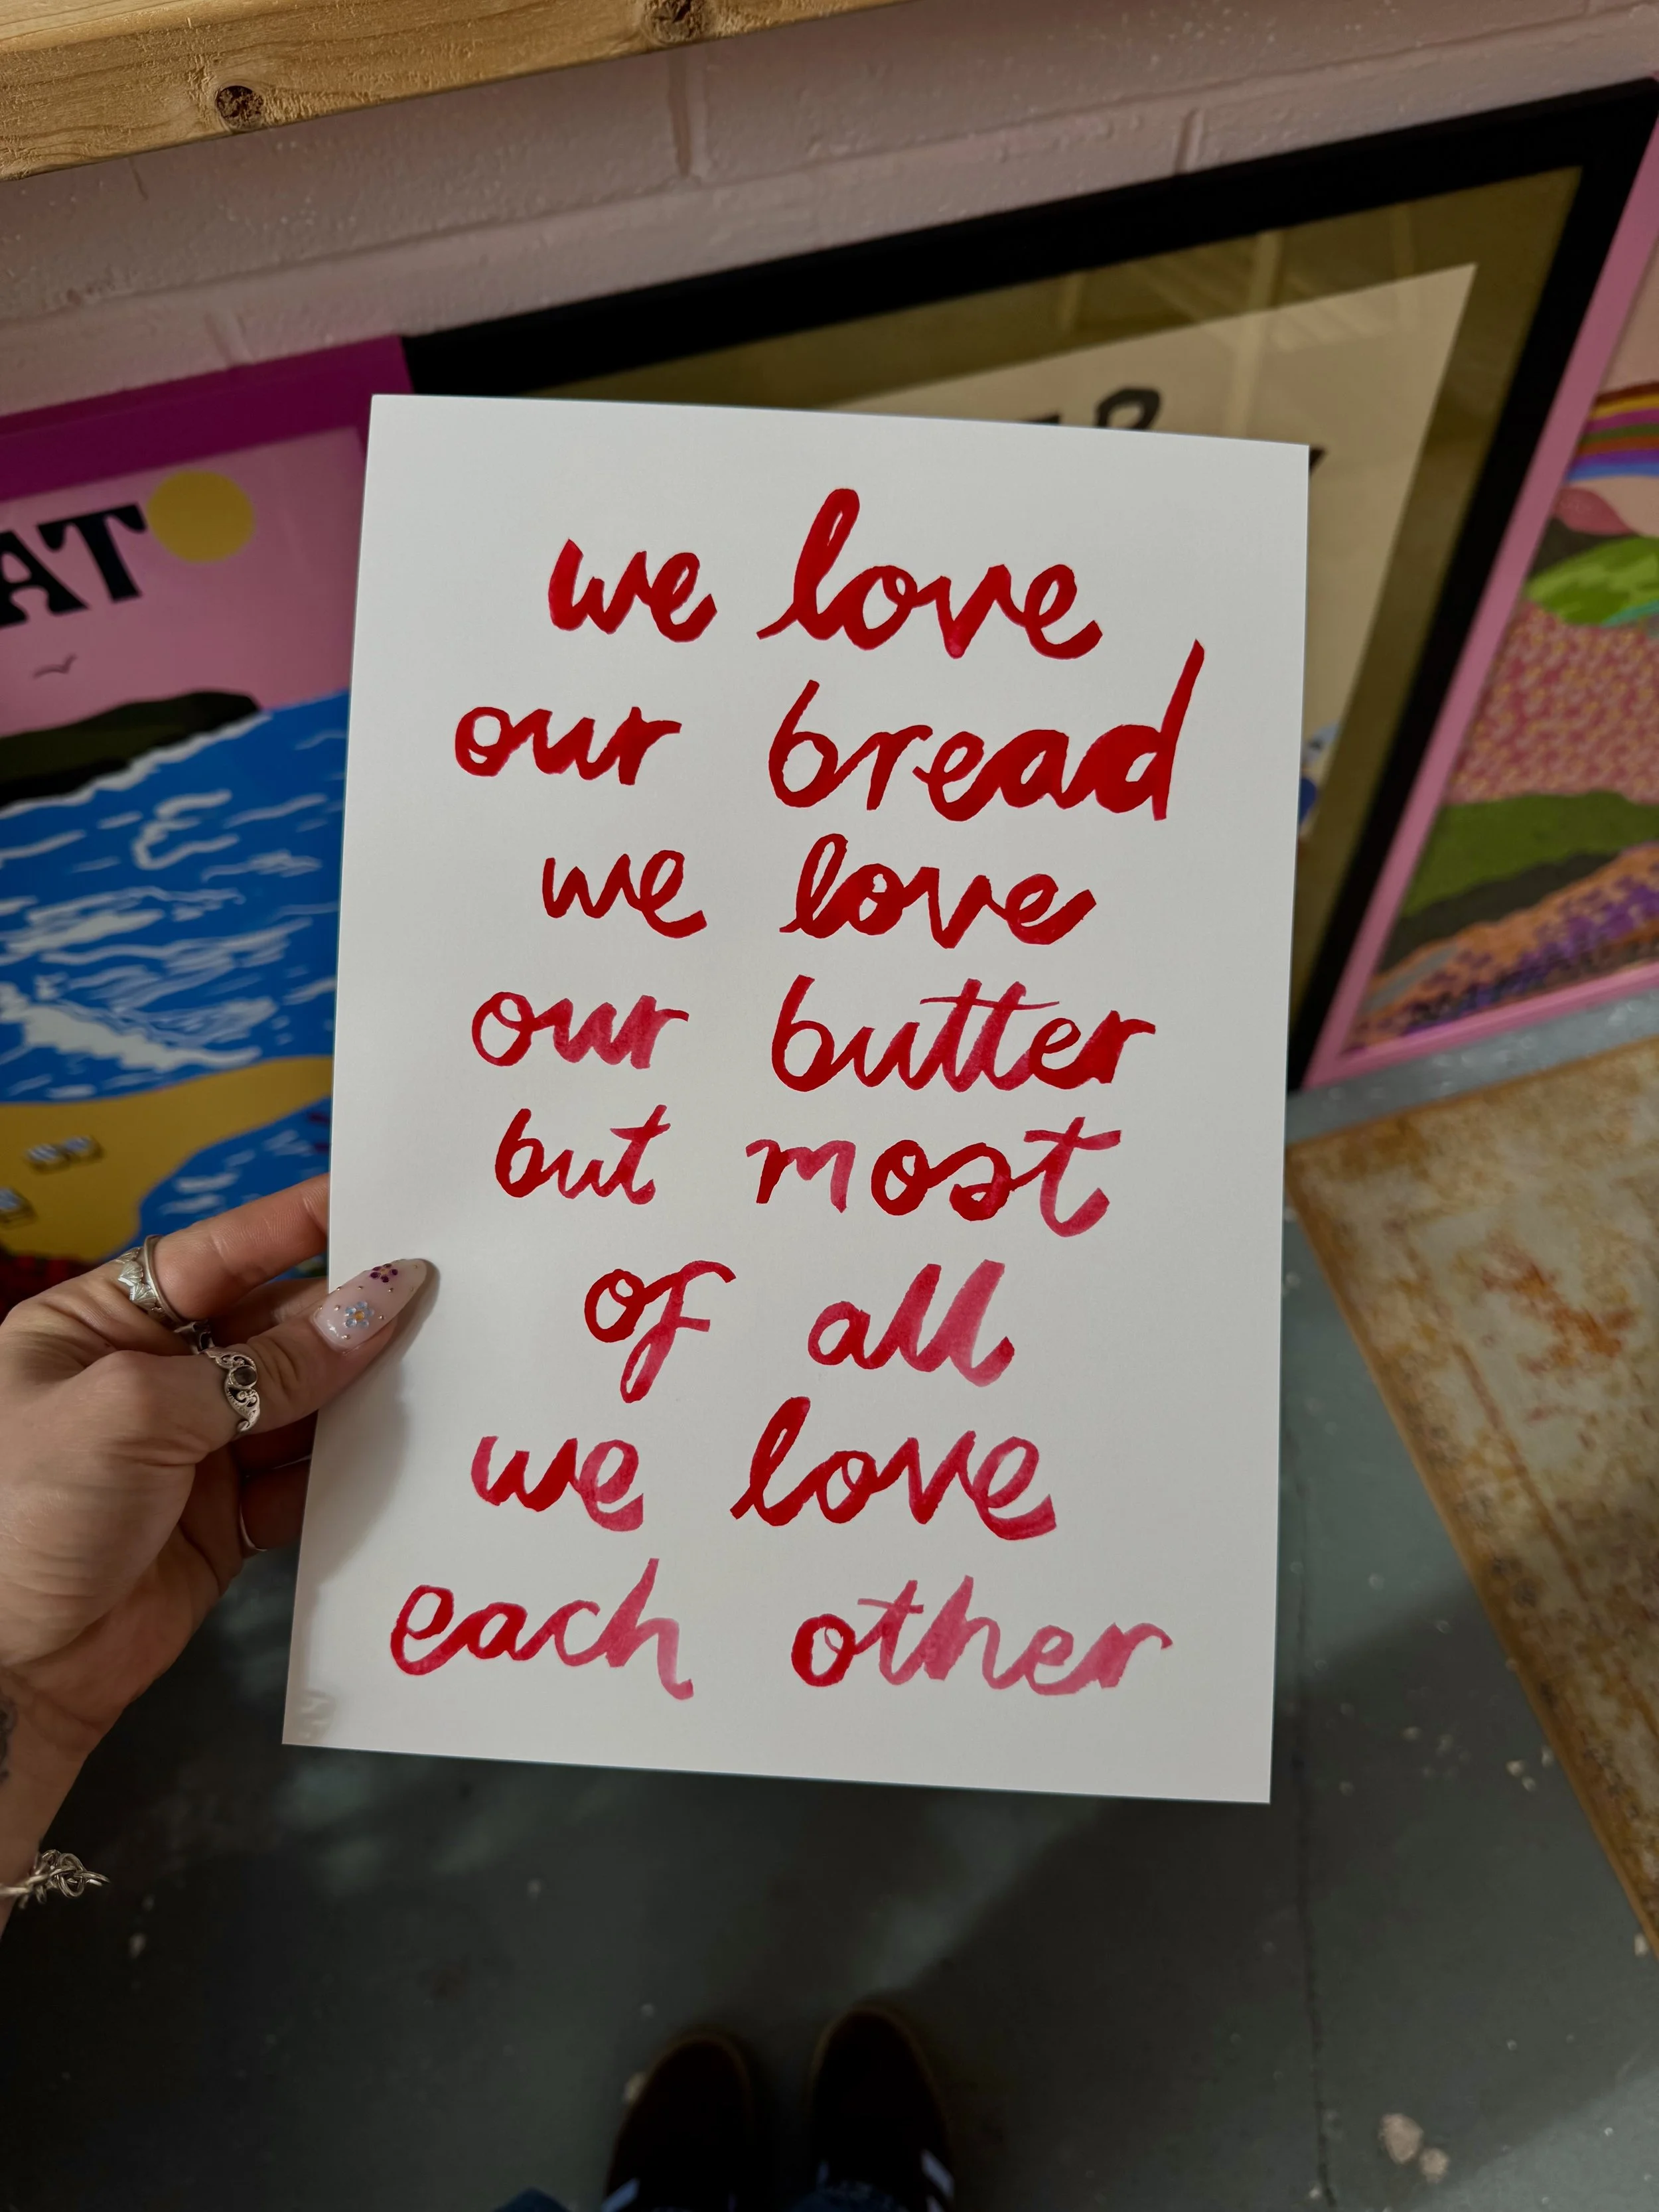 AT
we love
our bread
we love
our butter
but most
of all
we love
each other